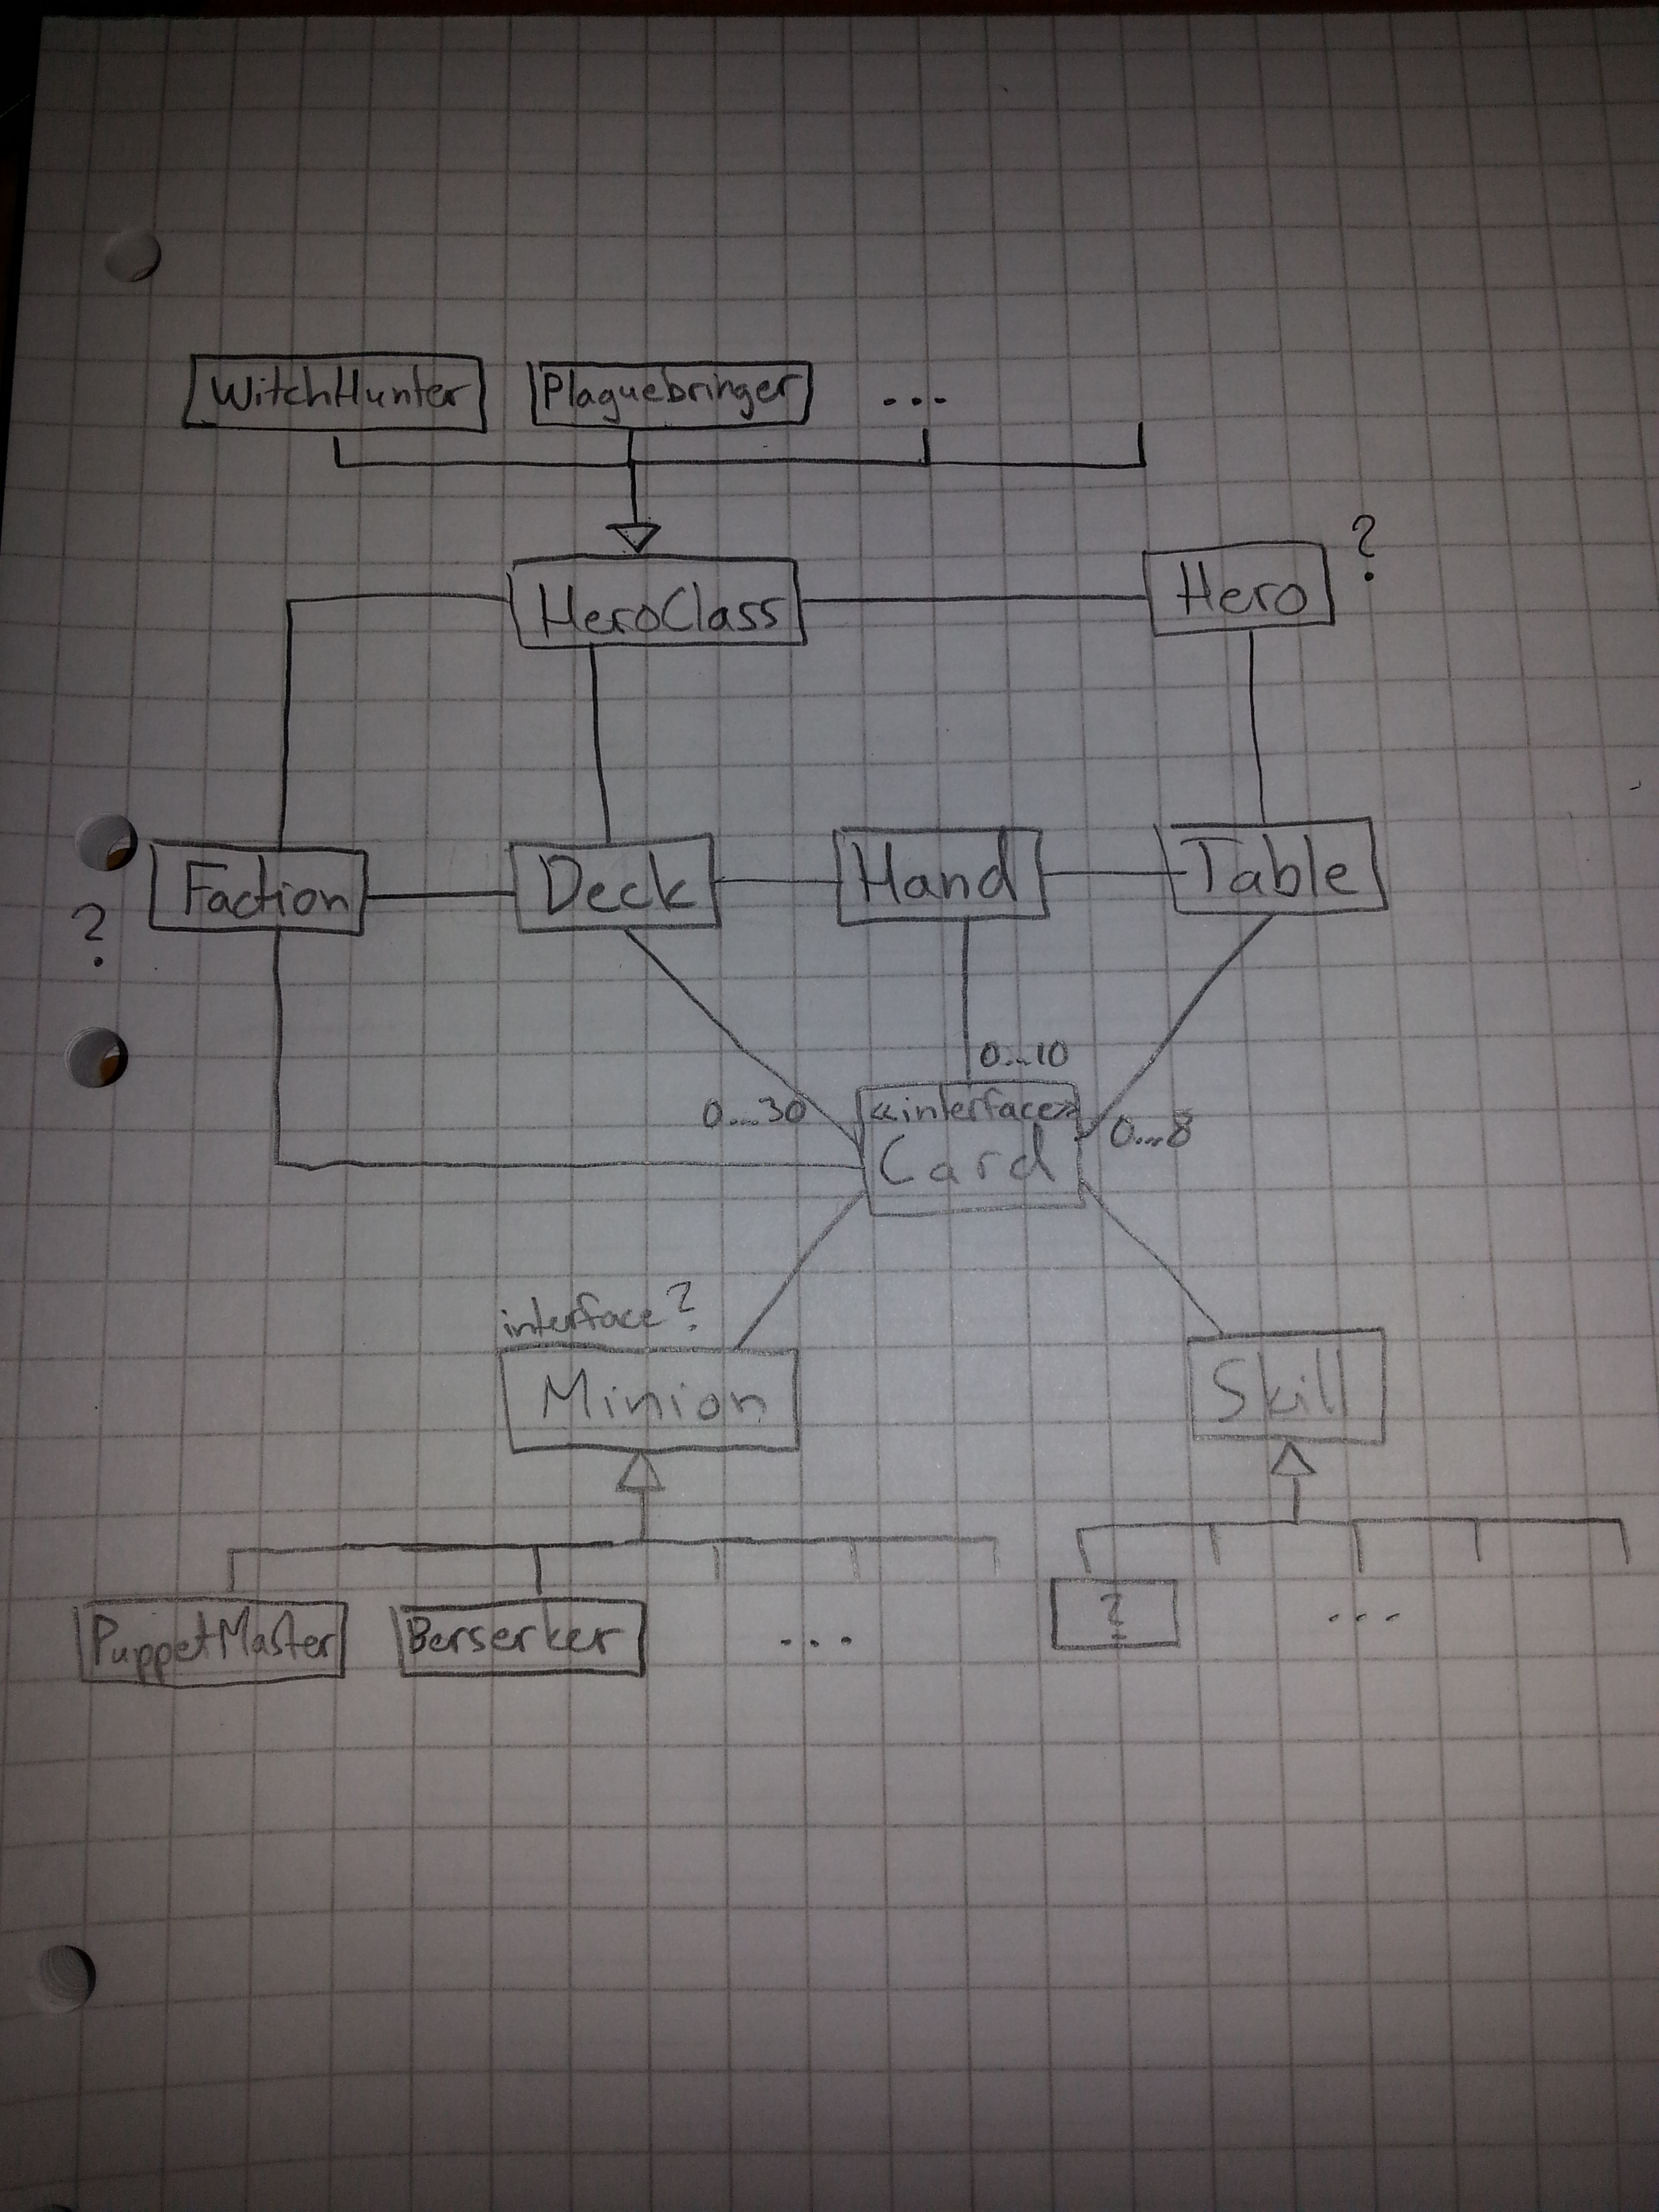 WitchHunter
Plaguebringer
...
HeroClass
Hero
?
Faction
?
Deck
Hand
Table
0...10
0...30
«interface»
Card
0...8
interface?
Minion
Skill
PuppetMaster
Berserker
...
?
...